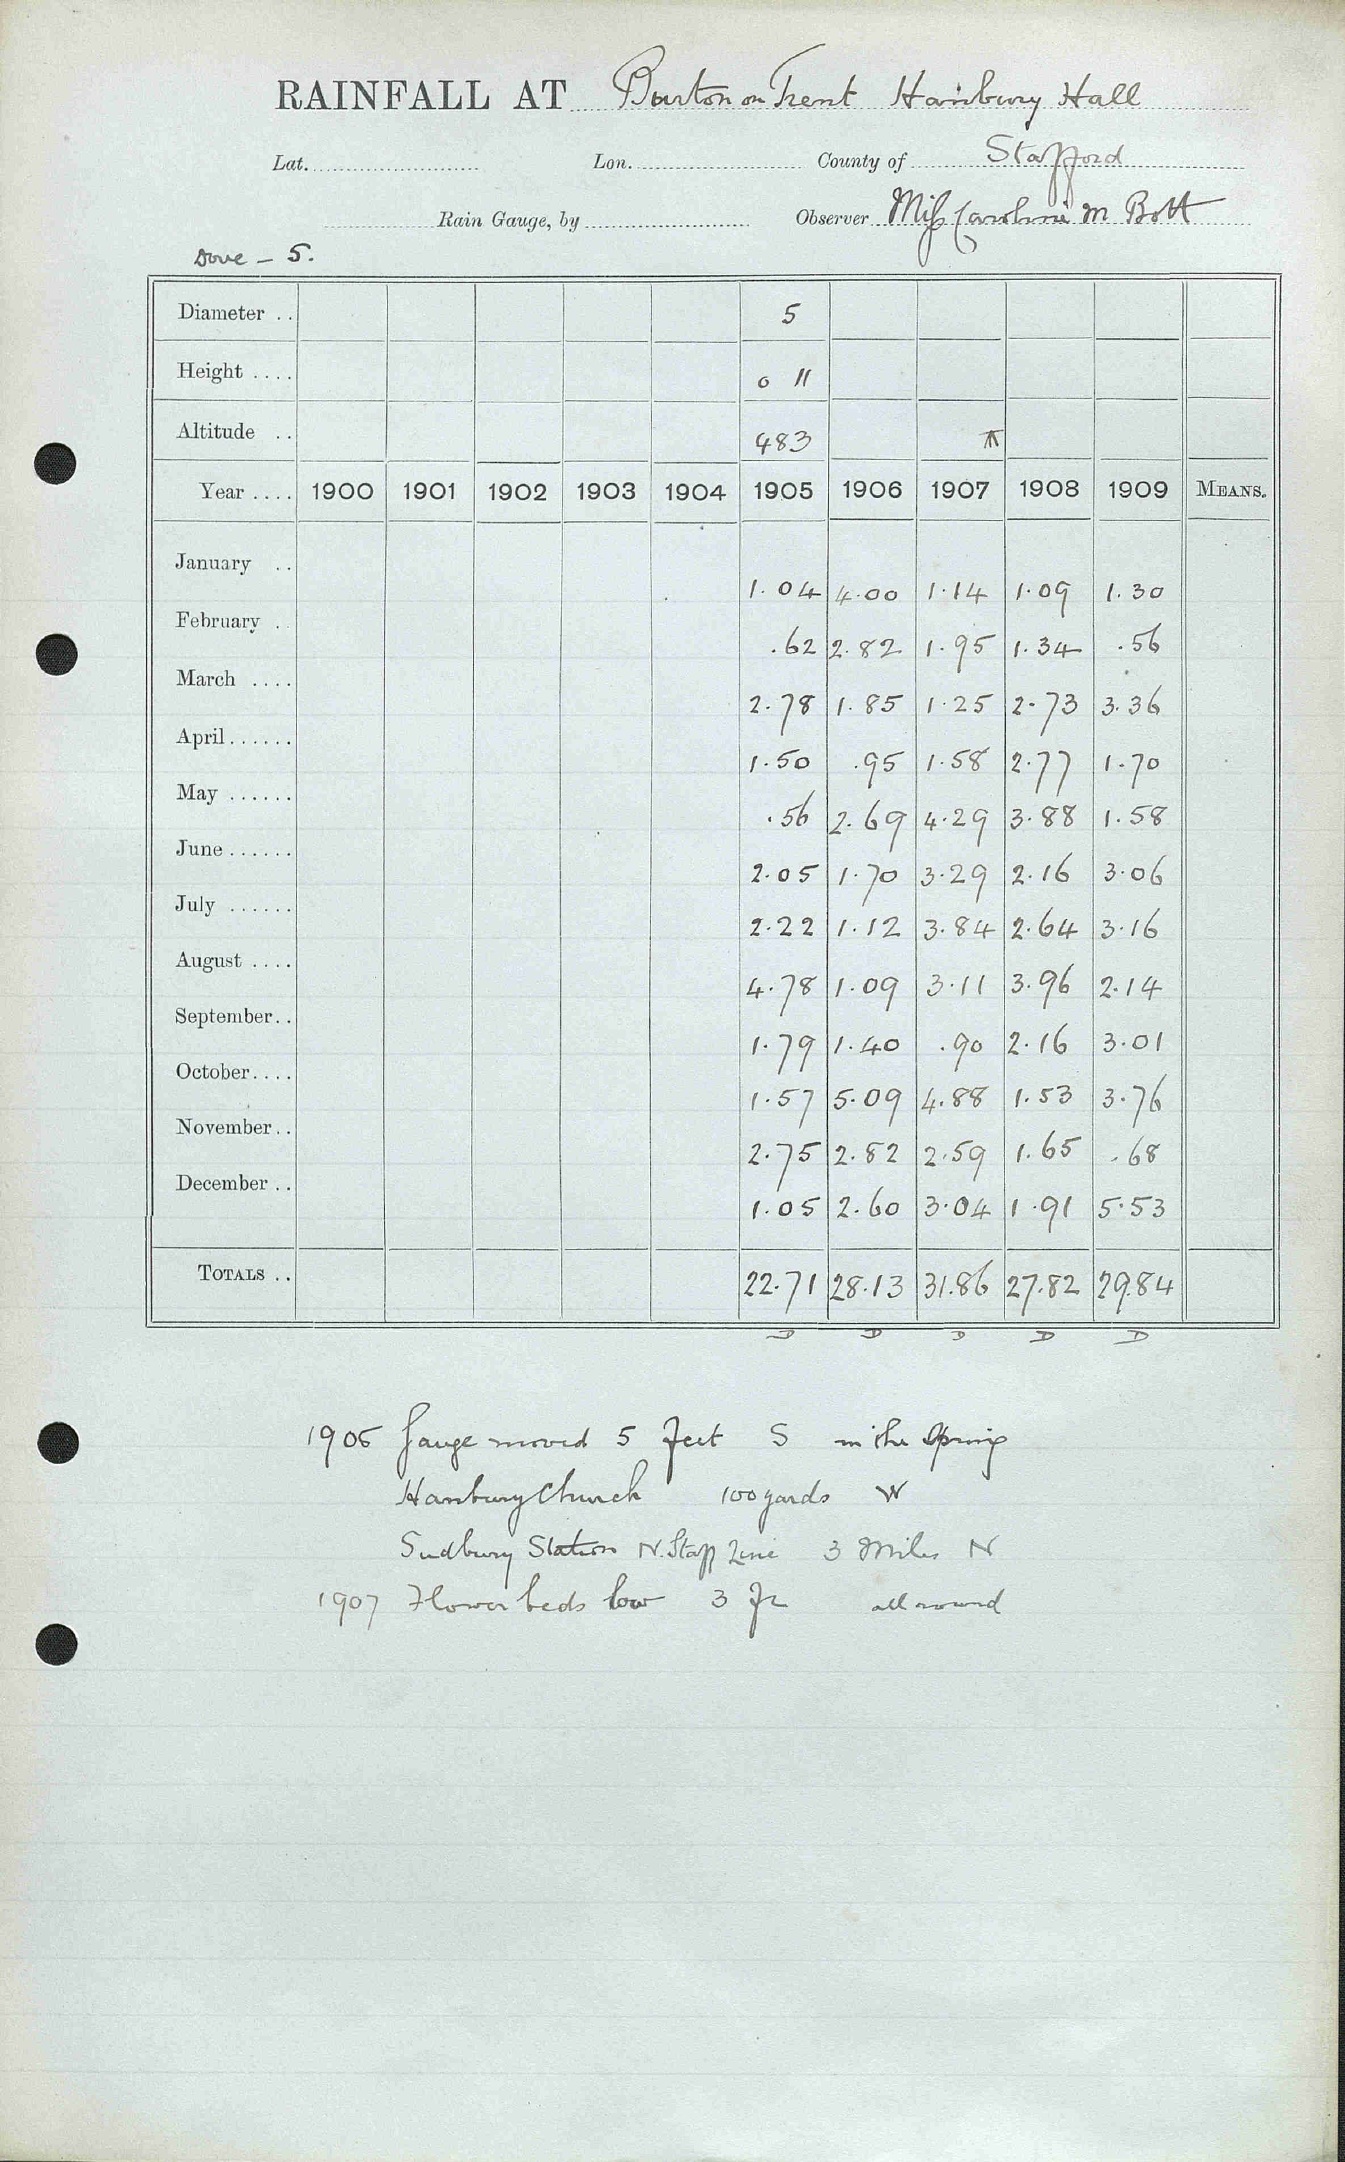 RAINFALL AT Burton on Trent Hanbury Hall
Lat. Lon. County of Stafford
Rain Gauge, by Observer Miss Caroline M Bott
Dove – 5.
Diameter .. 5
Height .... 0 11
Altitude .. 483
Year .... 1900 1901 1902 1903 1904 1905 1906 1907 1908 1909 MEANS.
January .. 1.04 4.00 1.14 1.09 1.30
February . .62 2.82 1.95 1.34 .56
March .... 2.78 1.85 1.25 2.73 3.36
April...... 1.50 .95 1.58 2.77 1.70
May ...... .56 2.69 4.29 3.88 1.58
June...... 2.05 1.70 3.29 2.16 3.06
July ...... 2.22 1.12 3.84 2.64 3.16
August .... 4.78 1.09 3.11 3.96 2.14
September.. 1.79 1.40 .90 2.16 3.01
October.... 1.57 5.09 4.88 1.53 3.76
November.. 2.75 2.82 2.59 1.65 .68
December .. 1.05 2.60 3.04 1.91 5.53
TOTALS .. 22.71 28.13 31.86 27.82 29.84
D D D D D
1906 Gauge moved 5 feet S in the Spring
Hanbury Church 100 yards W
Sudbury Station N. Staff Line 3 Miles N
1907 Flower beds low 3 ft all round